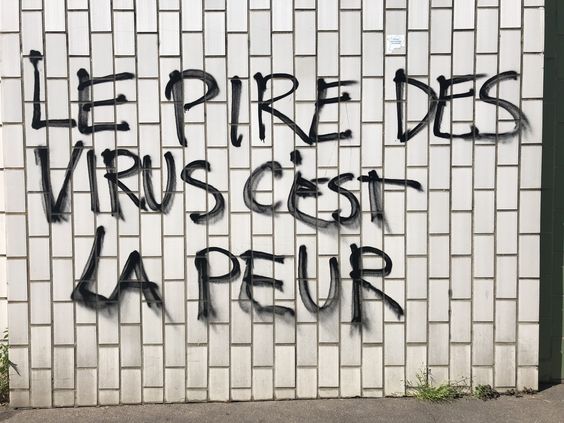 LE PIRE DES
VIRUS C'EST
LA PEUR